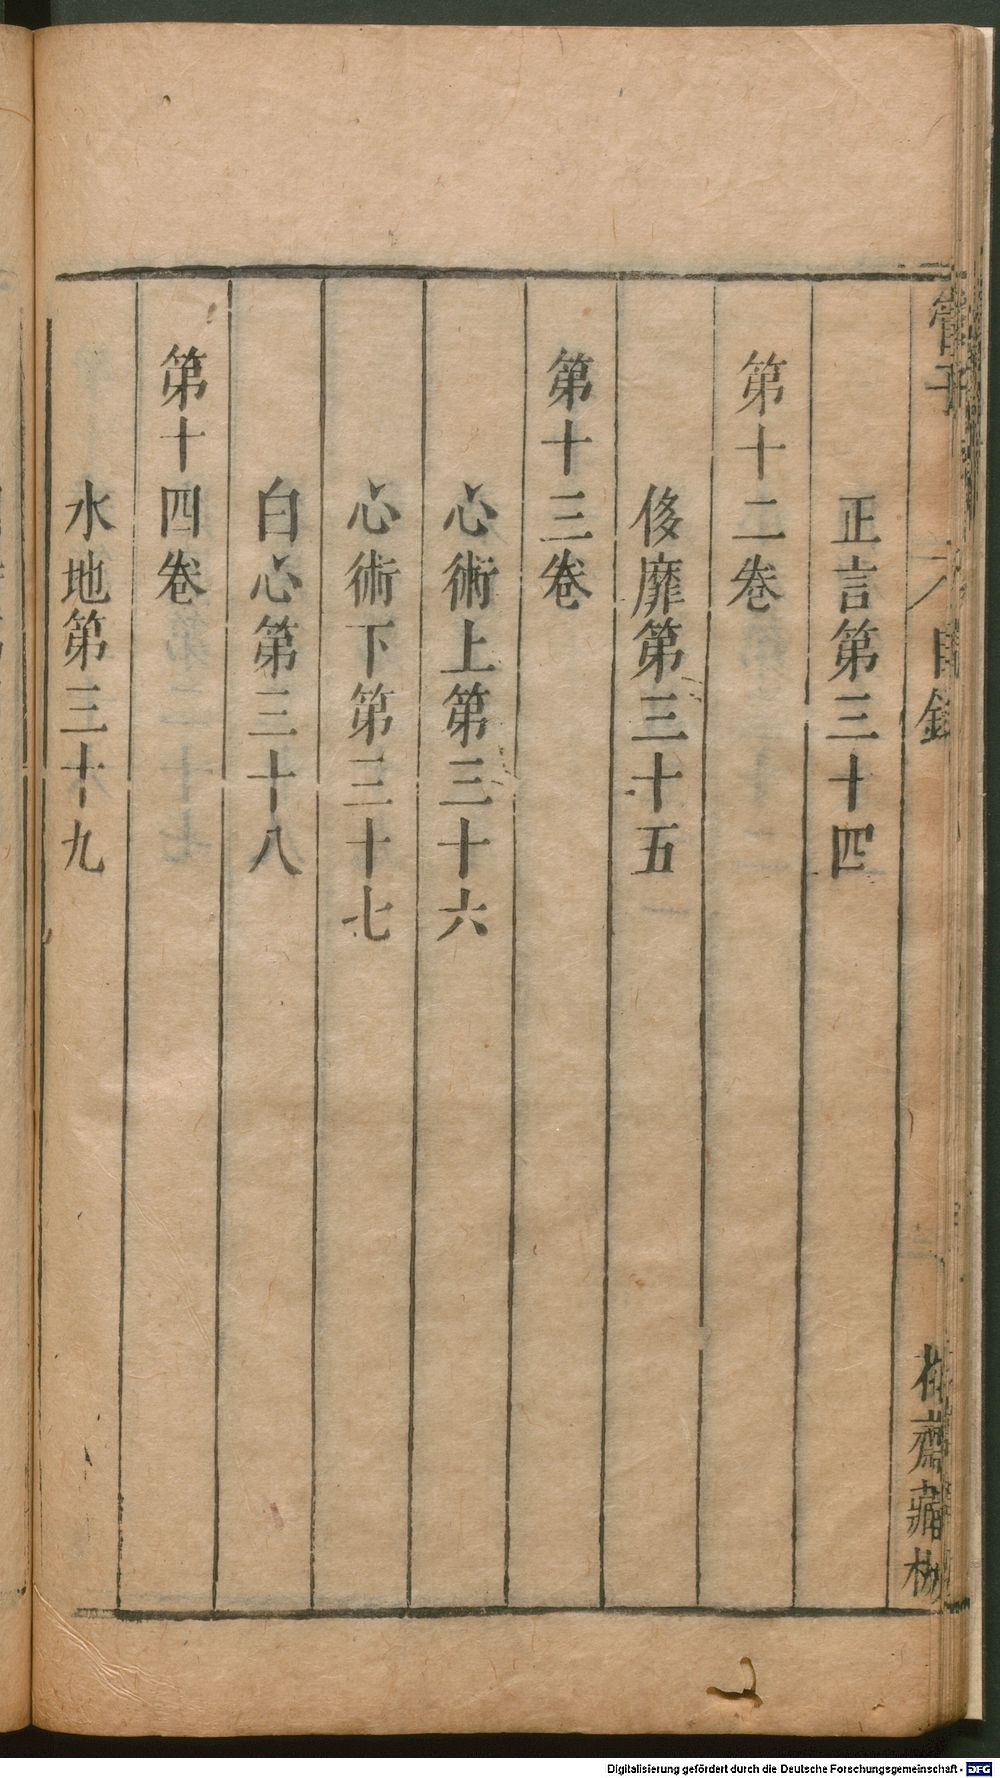 管子
目錄
正言第三十四
第十二卷
侈靡第三十五
第十三卷
心術上第三十六
心術下第三十七
白心第三十八
第十四卷
水地第三十九
花齋藏板
Digitalisierung gefördert durch die Deutsche Forschungsgemeinschaft - DFG